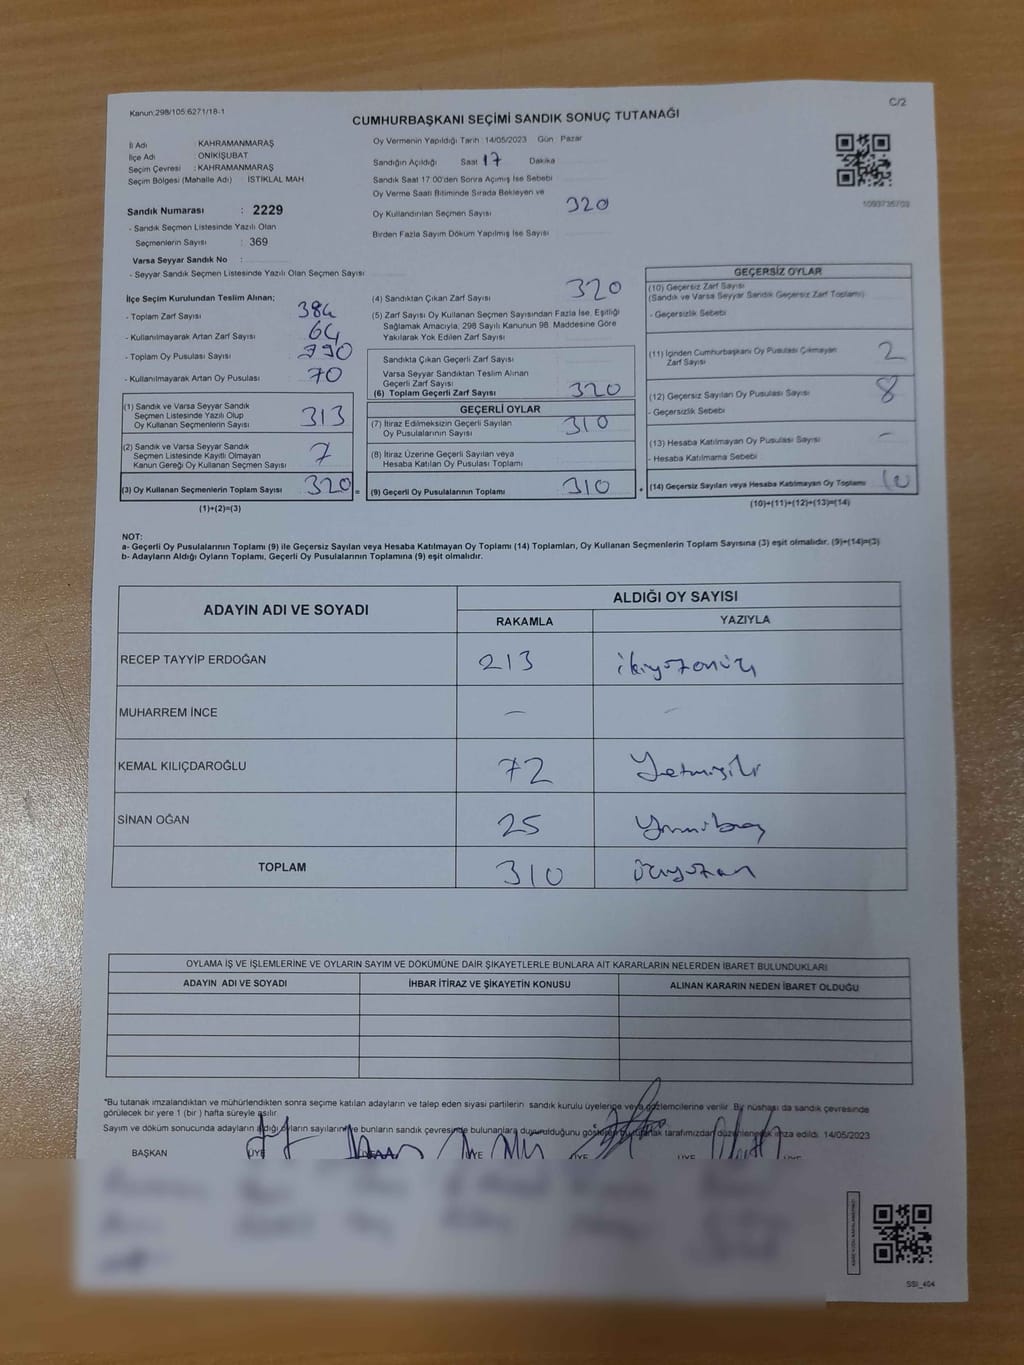 Kanun:298/105:6271/18-1
C/2
CUMHURBAŞKANI SEÇİMİ SANDIK SONUÇ TUTANAĞI
İl Adı : KAHRAMANMARAŞ
İlçe Adı : ONİKİŞUBAT
Seçim Çevresi : KAHRAMANMARAŞ
Seçim Bölgesi (Mahalle Adı) : İSTİKLAL MAH
Sandık Numarası : 2229
- Sandık Seçmen Listesinde Yazılı Olan
Seçmenlerin Sayısı : 369
Varsa Seyyar Sandık No :
- Seyyar Sandık Seçmen Listesinde Yazılı Olan Seçmen Sayısı
Oy Vermenin Yapıldığı Tarih :14/05/2023 Gün : Pazar
Sandığın Açıldığı Saat 17 Dakika
Sandık Saat 17:00'den Sonra Açılmış İse Sebebi
Oy Verme Saati Bitiminde Sırada Bekleyen ve
Oy Kullandırılan Seçmen Sayısı 320
Birden Fazla Sayım Döküm Yapılmış İse Sayısı
1093735703
İlçe Seçim Kurulundan Teslim Alınan;
- Toplam Zarf Sayısı 384
- Kullanılmayarak Artan Zarf Sayısı 64
- Toplam Oy Pusulası Sayısı 390
- Kullanılmayarak Artan Oy Pusulası 70
(1) Sandık ve Varsa Seyyar Sandık
Seçmen Listesinde Yazılı Olup
Oy Kullanan Seçmenlerin Sayısı 313
(2) Sandık ve Varsa Seyyar Sandık
Seçmen Listesinde Kayıtlı Olmayan
Kanun Gereği Oy Kullanan Seçmen Sayısı 7
(3) Oy Kullanan Seçmenlerin Toplam Sayısı 320 =
(1)+(2)=(3)
(4) Sandıktan Çıkan Zarf Sayısı 320
(5) Zarf Sayısı Oy Kullanan Seçmen Sayısından Fazla İse, Eşitliği
Sağlamak Amacıyla, 298 Sayılı Kanunun 98. Maddesine Göre
Yakılarak Yok Edilen Zarf Sayısı
Sandıkta Çıkan Geçerli Zarf Sayısı
Varsa Seyyar Sandıktan Teslim Alınan
Geçerli Zarf Sayısı
(6) Toplam Geçerli Zarf Sayısı 320
GEÇERLİ OYLAR
(7) İtiraz Edilmeksizin Geçerli Sayılan
Oy Pusulalarının Sayısı 310
(8) İtiraz Üzerine Geçerli Sayılan veya
Hesaba Katılan Oy Pusulası Toplamı
(9) Geçerli Oy Pusulalarının Toplamı 310 +
GEÇERSİZ OYLAR
(10) Geçersiz Zarf Sayısı
(Sandık ve Varsa Seyyar Sandık Geçersiz Zarf Toplamı)
- Geçersizlik Sebebi
(11) İçinden Cumhurbaşkanı Oy Pusulası Çıkmayan
Zarf Sayısı 2
(12) Geçersiz Sayılan Oy Pusulası Sayısı 8
- Geçersizlik Sebebi
(13) Hesaba Katılmayan Oy Pusulası Sayısı -
- Hesaba Katılmama Sebebi
(14) Geçersiz Sayılan veya Hesaba Katılmayan Oy Toplamı 10
(10)+(11)+(12)+(13)=(14)
NOT:
a- Geçerli Oy Pusulalarının Toplamı (9) ile Geçersiz Sayılan veya Hesaba Katılmayan Oy Toplamı (14) Toplamları, Oy Kullanan Seçmenlerin Toplam Sayısına (3) eşit olmalıdır. (9)+(14)=(3)
b- Adayların Aldığı Oyların Toplamı, Geçerli Oy Pusulalarının Toplamına (9) eşit olmalıdır.
ADAYIN ADI VE SOYADI
ALDIĞI OY SAYISI
RAKAMLA YAZIYLA
RECEP TAYYİP ERDOĞAN 213 ikiyüzonüç
MUHARREM İNCE - -
KEMAL KILIÇDAROĞLU 72 Yetmişiki
SİNAN OĞAN 25 Yirmibeş
TOPLAM 310 üçyüzon
OYLAMA İŞ VE İŞLEMLERİNE VE OYLARIN SAYIM VE DÖKÜMÜNE DAİR ŞİKAYETLERLE BUNLARA AİT KARARLARIN NELERDEN İBARET BULUNDUKLARI
ADAYIN ADI VE SOYADI İHBAR İTİRAZ VE ŞİKAYETİN KONUSU ALINAN KARARIN NEDEN İBARET OLDUĞU
*Bu tutanak imzalandıktan ve mühürlendikten sonra seçime katılan adayların ve talep eden siyasi partilerin sandık kurulu üyelerine veya gözlemcilerine verilir. Bir nüshası da sandık çevresinde
görülecek bir yere 1 (bir ) hafta süreyle asılır.
Sayım ve döküm sonucunda adayların aldığı oyların sayılarını ve bunların sandık çevresinde bulunanlara duyurulduğunu gösteren bu tutanak tarafımızdan düzenlenerek imza edildi. 14/05/2023
BAŞKAN ÜYE ÜYE ÜYE ÜYE ÜYE
SSI_404